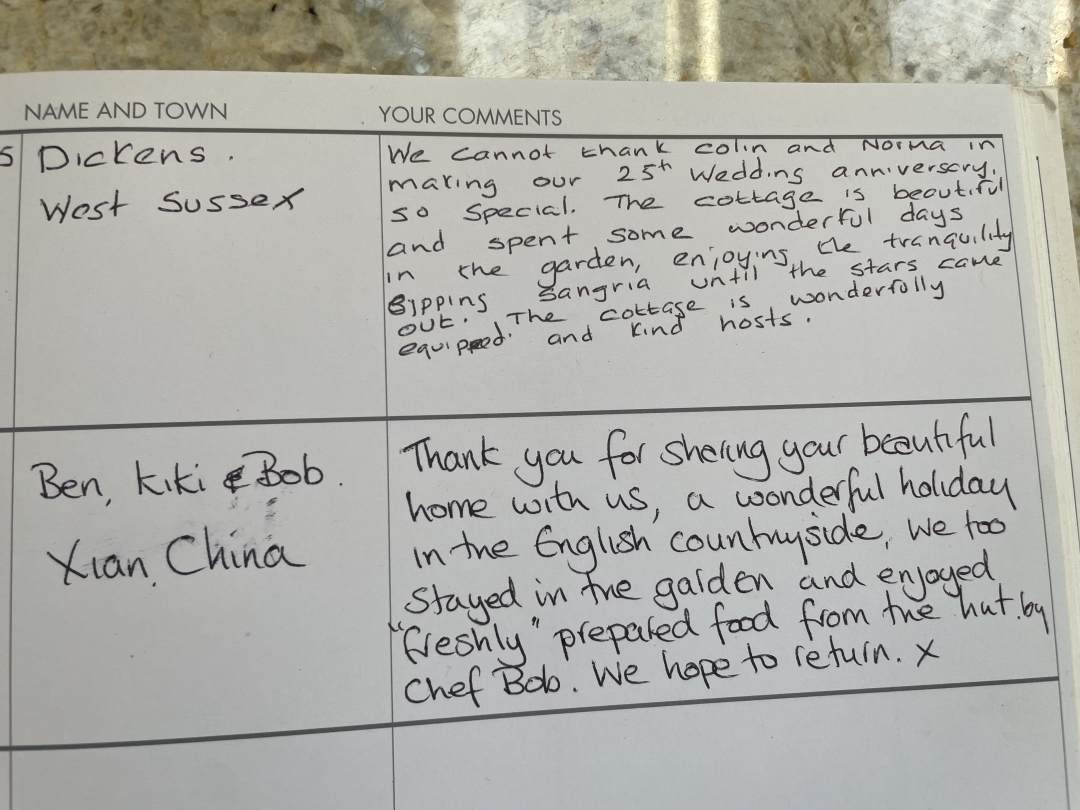 NAME AND TOWN
YOUR COMMENTS
S
Dickens.
West Sussex
We cannot thank colin and Norma in
making our 25th Wedding anniversary.
so special. The cottage is beautiful
and spent some wonderful days
in the garden, enjoying the tranquility
sipping sangria until the stars came
out. The cottage is wonderfully
equipped. and kind hosts.
Ben, Kiki & Bob.
Xian, China
Thank you for sharing your beautiful
home with us, a wonderful holiday
in the English countryside, we too
stayed in the garden and enjoyed
"freshly" prepared food from the hut. by
Chef Bob. We hope to return. X